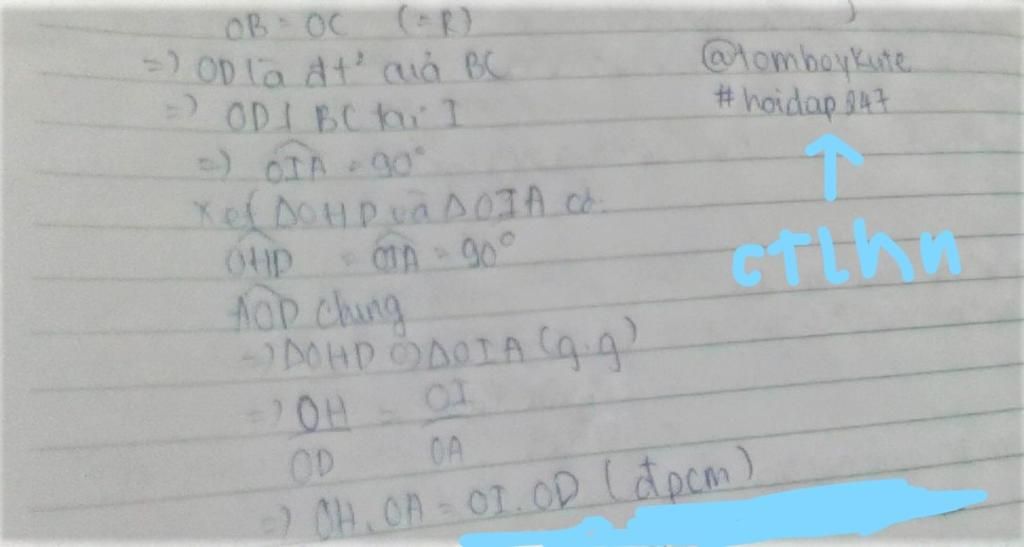 OB = OC (=R)
=) OD là đt² của BC
=) OD⊥BC tại I
=) OIA = 90°
Xét ΔOHD và ΔOIA có:
OHD = OIA = 90°
AOD chung
=) ΔOHD ∽ ΔOIA (g.g)
=) OH/OD = OI/OA
=) OH.OA = OI.OD (đpcm)
@tomboykute
#hoidap247
ctlhn